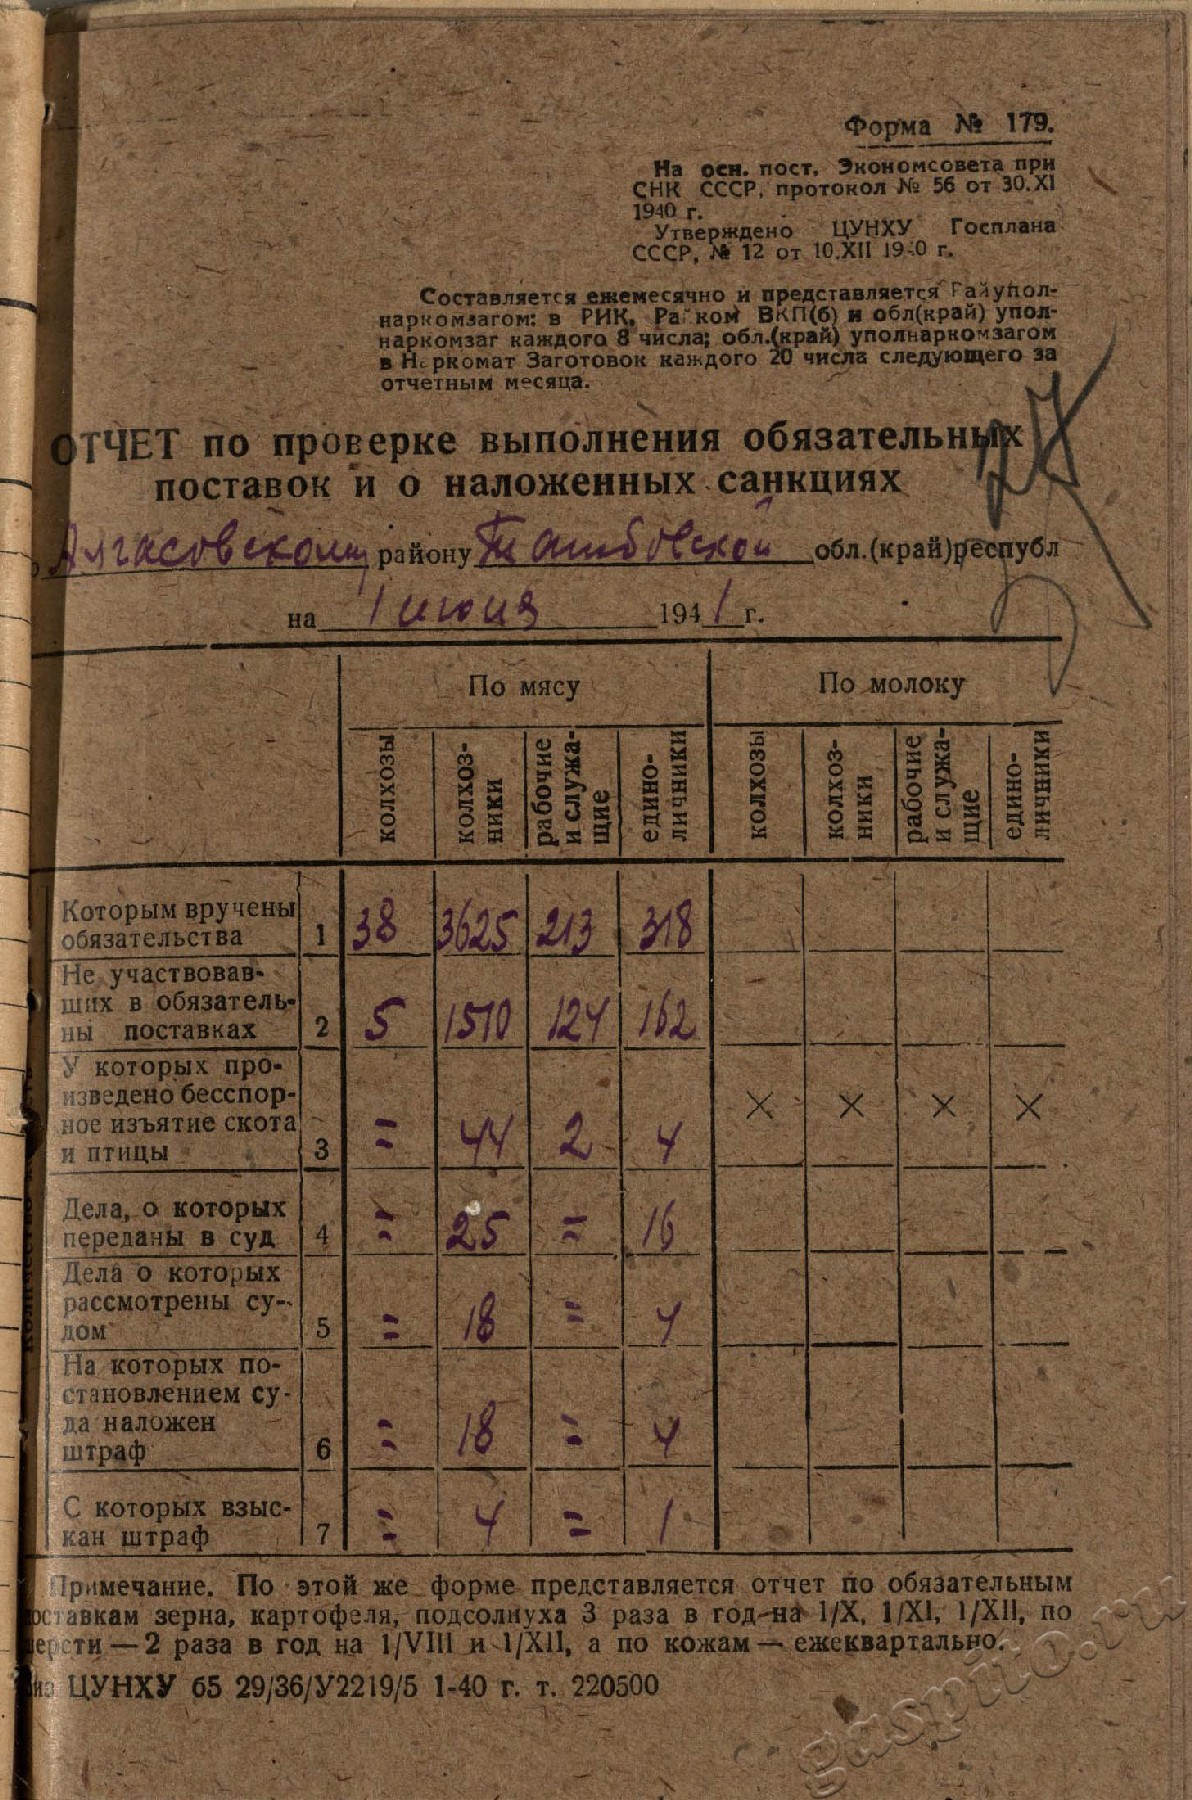 Форма № 179.
На осн. пост. Экономсовета при
СНК СССР, протокол № 56 от 30.XI
1940 г.
Утверждено ЦУНХУ Госплана
СССР, № 12 от 10.XII 1940 г.
Составляется ежемесячно и представляется Райупол-
наркомзагом: в РИК, Райком ВКП(б) и обл(край) упол-
наркомзаг каждого 8 числа; обл.(край) уполнаркомзагом
в Наркомат Заготовок каждого 20 числа следующего за
отчетным месяца.
27
ОТЧЕТ по проверке выполнения обязательных
поставок и о наложенных санкциях
Алгасовскому району Тамбовской обл.(край)республ
на 1 июня 1941 г.
По мясу По молоку
колхозы колхоз-ники рабочие и служа-щие едино-личники колхозы колхоз-ники рабочие и служа-щие едино-личники
Которым вручены
обязательства 1 38 3625 213 318
Не участвовав-
ших в обязатель-
ны поставках 2 5 1510 124 162
У которых про-
изведено бесспор-
ное изъятие скота
и птицы 3 = 44 2 4 × × × ×
Дела, о которых
переданы в суд 4 = 25 = 16
Дела о которых
рассмотрены су-
дом 5 = 18 = 4
На которых по-
становлением су-
да наложен
штраф 6 = 18 = 4
С которых взыс-
кан штраф 7 = 4 = 1
Примечание. По этой же форме представляется отчет по обязательным
поставкам зерна, картофеля, подсолнуха 3 раза в год на 1/X, 1/XI, 1/XII, по
шерсти — 2 раза в год на 1/VIII и 1/XII, а по кожам — ежеквартально.
ЦУНХУ б5 29/36/У2219/5 1-40 г. т. 220500
gaspito.ru